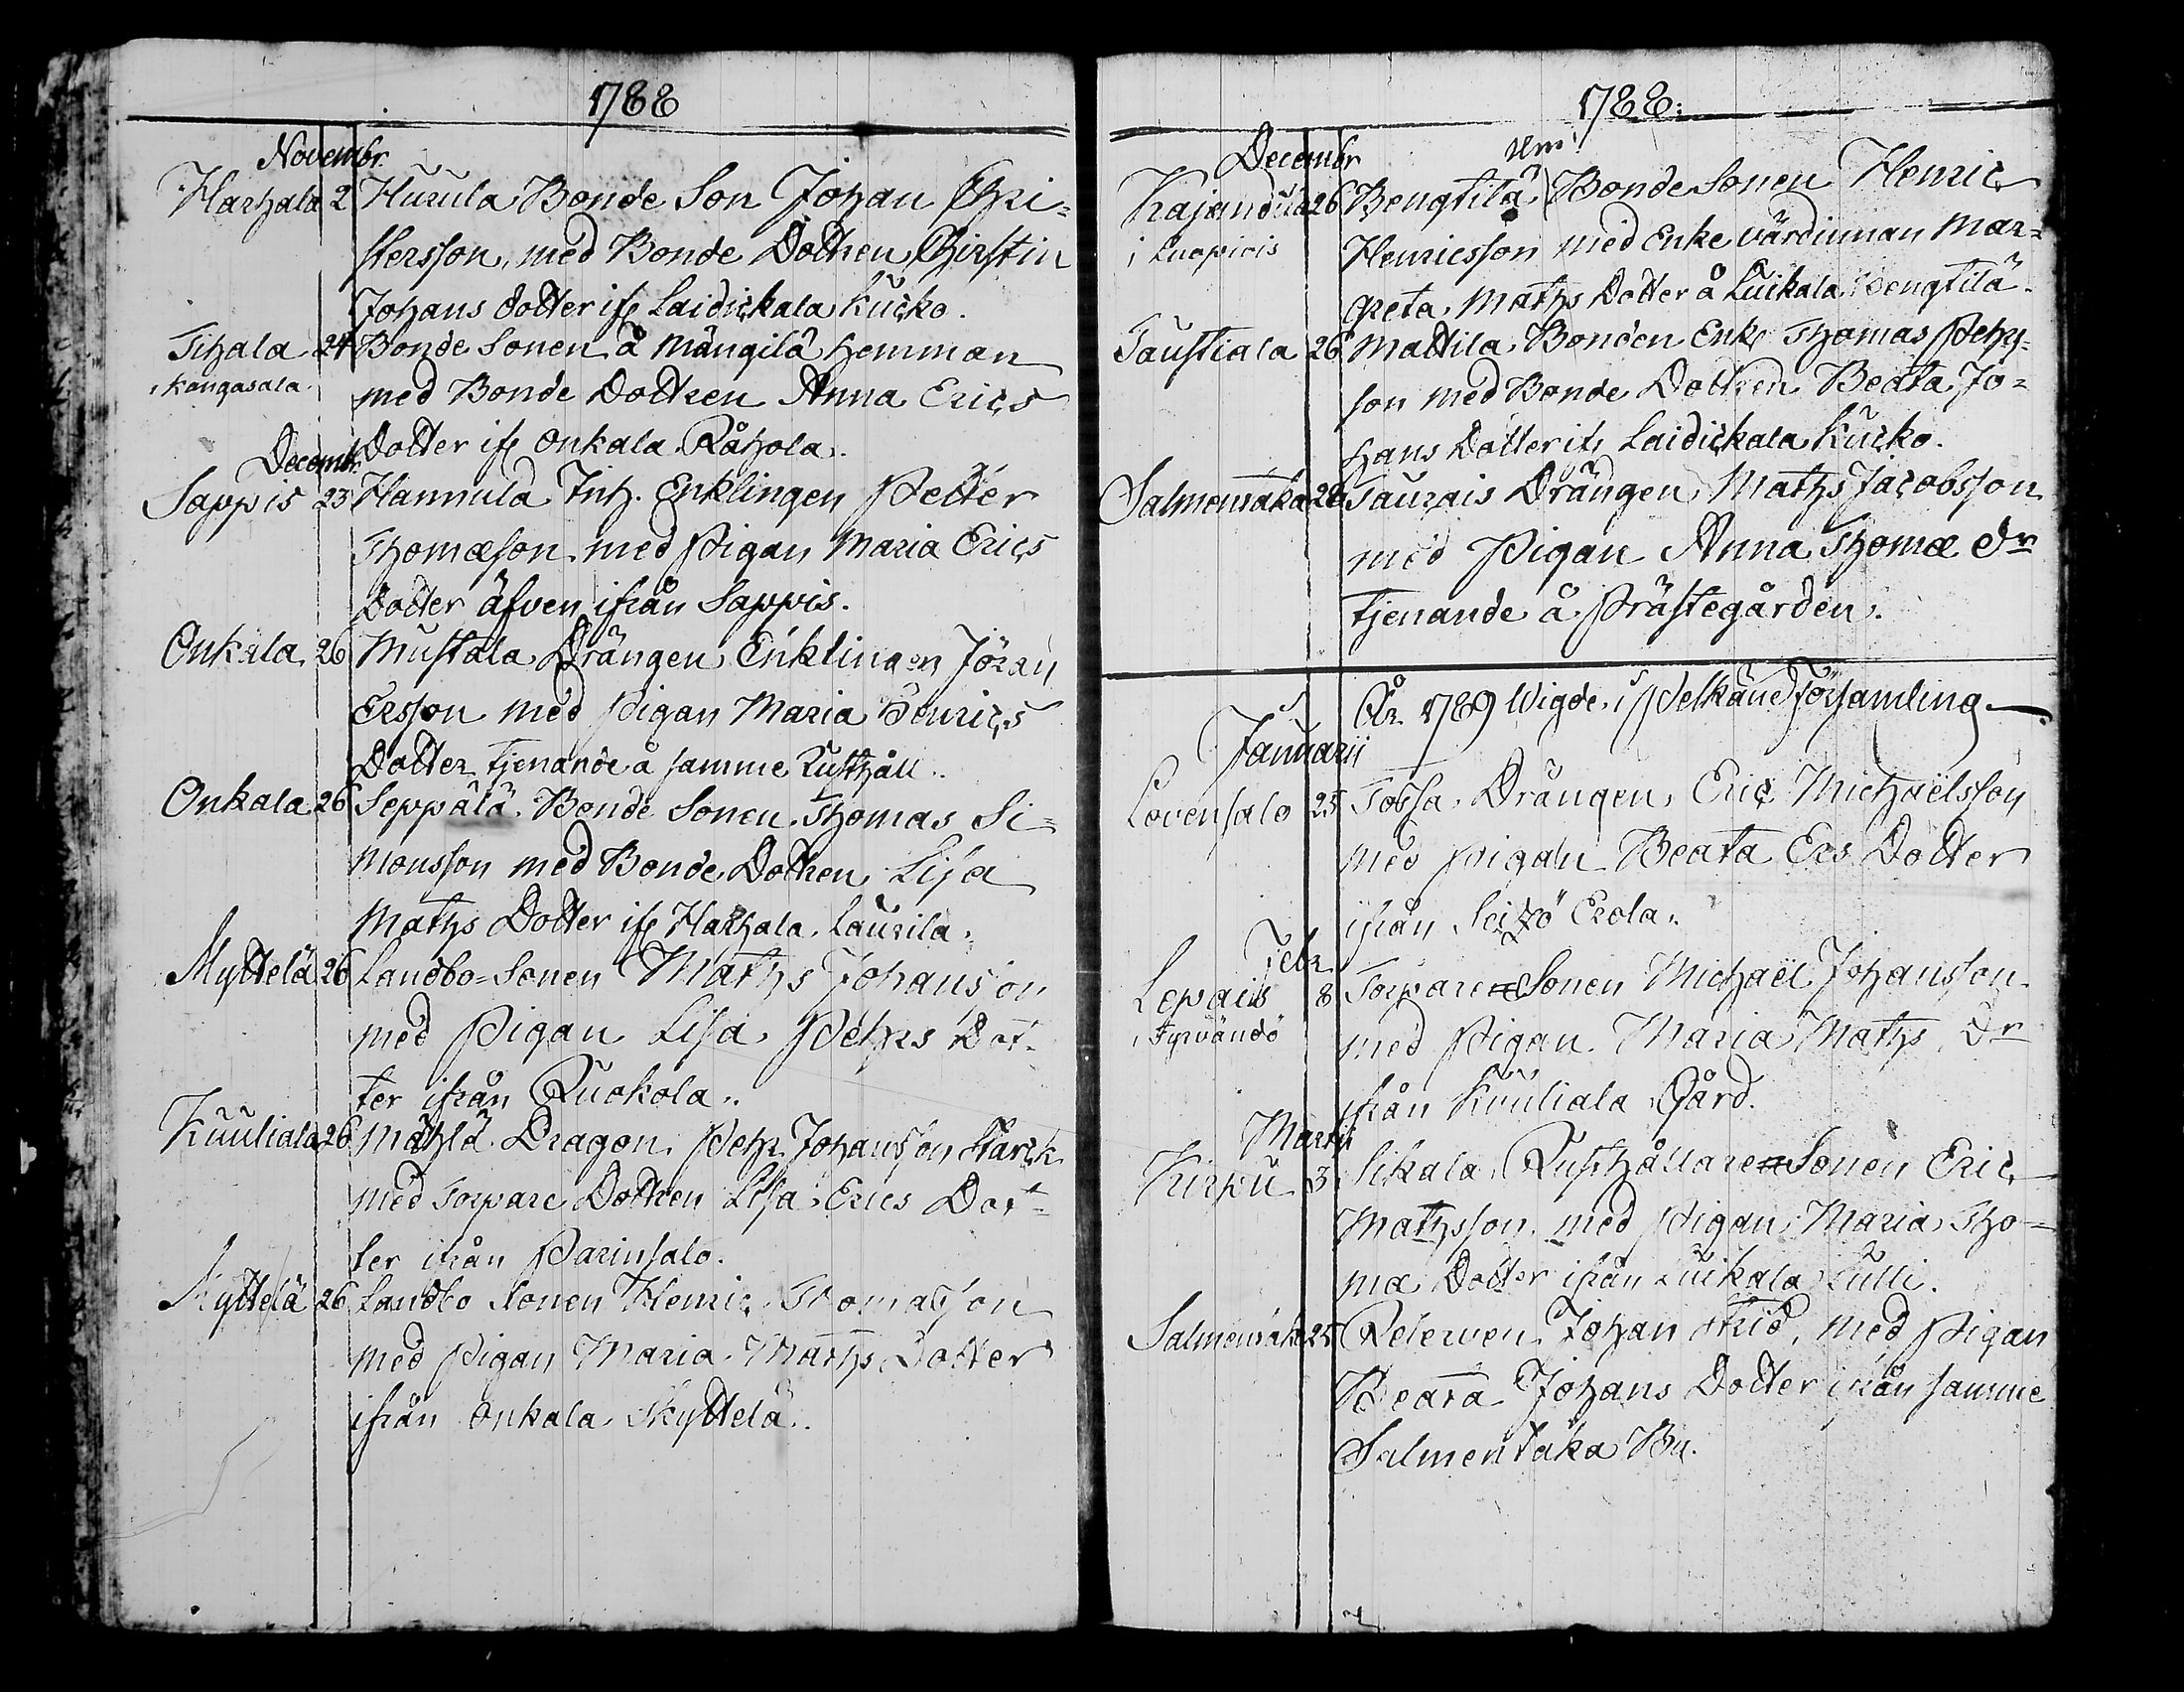 1788
Novembr.
Harhala 2 Hurula Bonde Son Johan Chri=
stersson, med Bonde Dottren Chirstin
Johans dotter ifr Laidickala Kucko.
Tihala 24 Bonde Sonen å Mängilä hemman
i Kangasala. med Bonde Dottren Anna Erics
Dotter ifr Onkala Råhola.
Decembr.
Sappis 23 Hannula Inh. Enklingen Petter
Thomæson med Pigan Maria Erics
Dotter äfven ifrån Sappis.
Onkala 26 Mustala Drängen Enklingen Jöran
Ersson med Pigan Maria Henrics
Dotter tjenande å samme Rusthåll.
Onkala 26 Seppälä Bonde Sonen Thomas Si=
monsson med Bonde Dottren Lisa
Maths Dotter ifr Harhala Laurila.
Myttelä 26 Landbo=Sonen Maths Johansson
med Pigan Lisa Pehrs Dot=
ter ifrån Ruokola.
Kuuliala 26 Mählä Dragon Pehr Johansson Starck
med Torpare Dottren Lisa Erics Dot=
ter ifrån Parinsalo.
Kyttelä 26 Landbo Sonen Henric Thomasson
med Pigan Maria Maths Dotter
ifrån Onkala Skyttelä.
1788.
Decembr
Kajandila 26 Bengtilä Bonde Sonen Henric
i Luopiois Henricsson med Enke värdinnan Mar=
greta Maths Dotter å Luikala Bengtilä.
Taustiala 26 Mattila Bonden Enk. Thomas Pehrs=
son med Bonde Dottren Beata Jo=
hans Dotter ifr Laidickala Kucko.
Salmentaka 28 Taurais Drängen Maths Jacobsson
med Pigan Anna Thomæ dr
tjenande å Prästegården.
År 1789 Wigde i Pelkäne Församling.
Januarii
Lovensalo 25 Tossa Drängen Eric Michaëlsson
med Pigan Beata Ers Dotter
ifrån Seizö Erola.
Febr.
Lepais 8 Torpare Sonen Michaël Johansson
i Tyrvändö med Pigan Maria Maths Dr
ifrån Kuuliala Gård.
Martii
Kirpu 3 Sikala Rusthållare Sonen Eric
Mathsson med Pigan Maria Tho=
mæ Dotter ifrån Luikala Lulli.
Salmentaka 25 Reserven Johan Strid, med Pigan
Beata Johans Dotter ifrån samme
Salmentaka By.